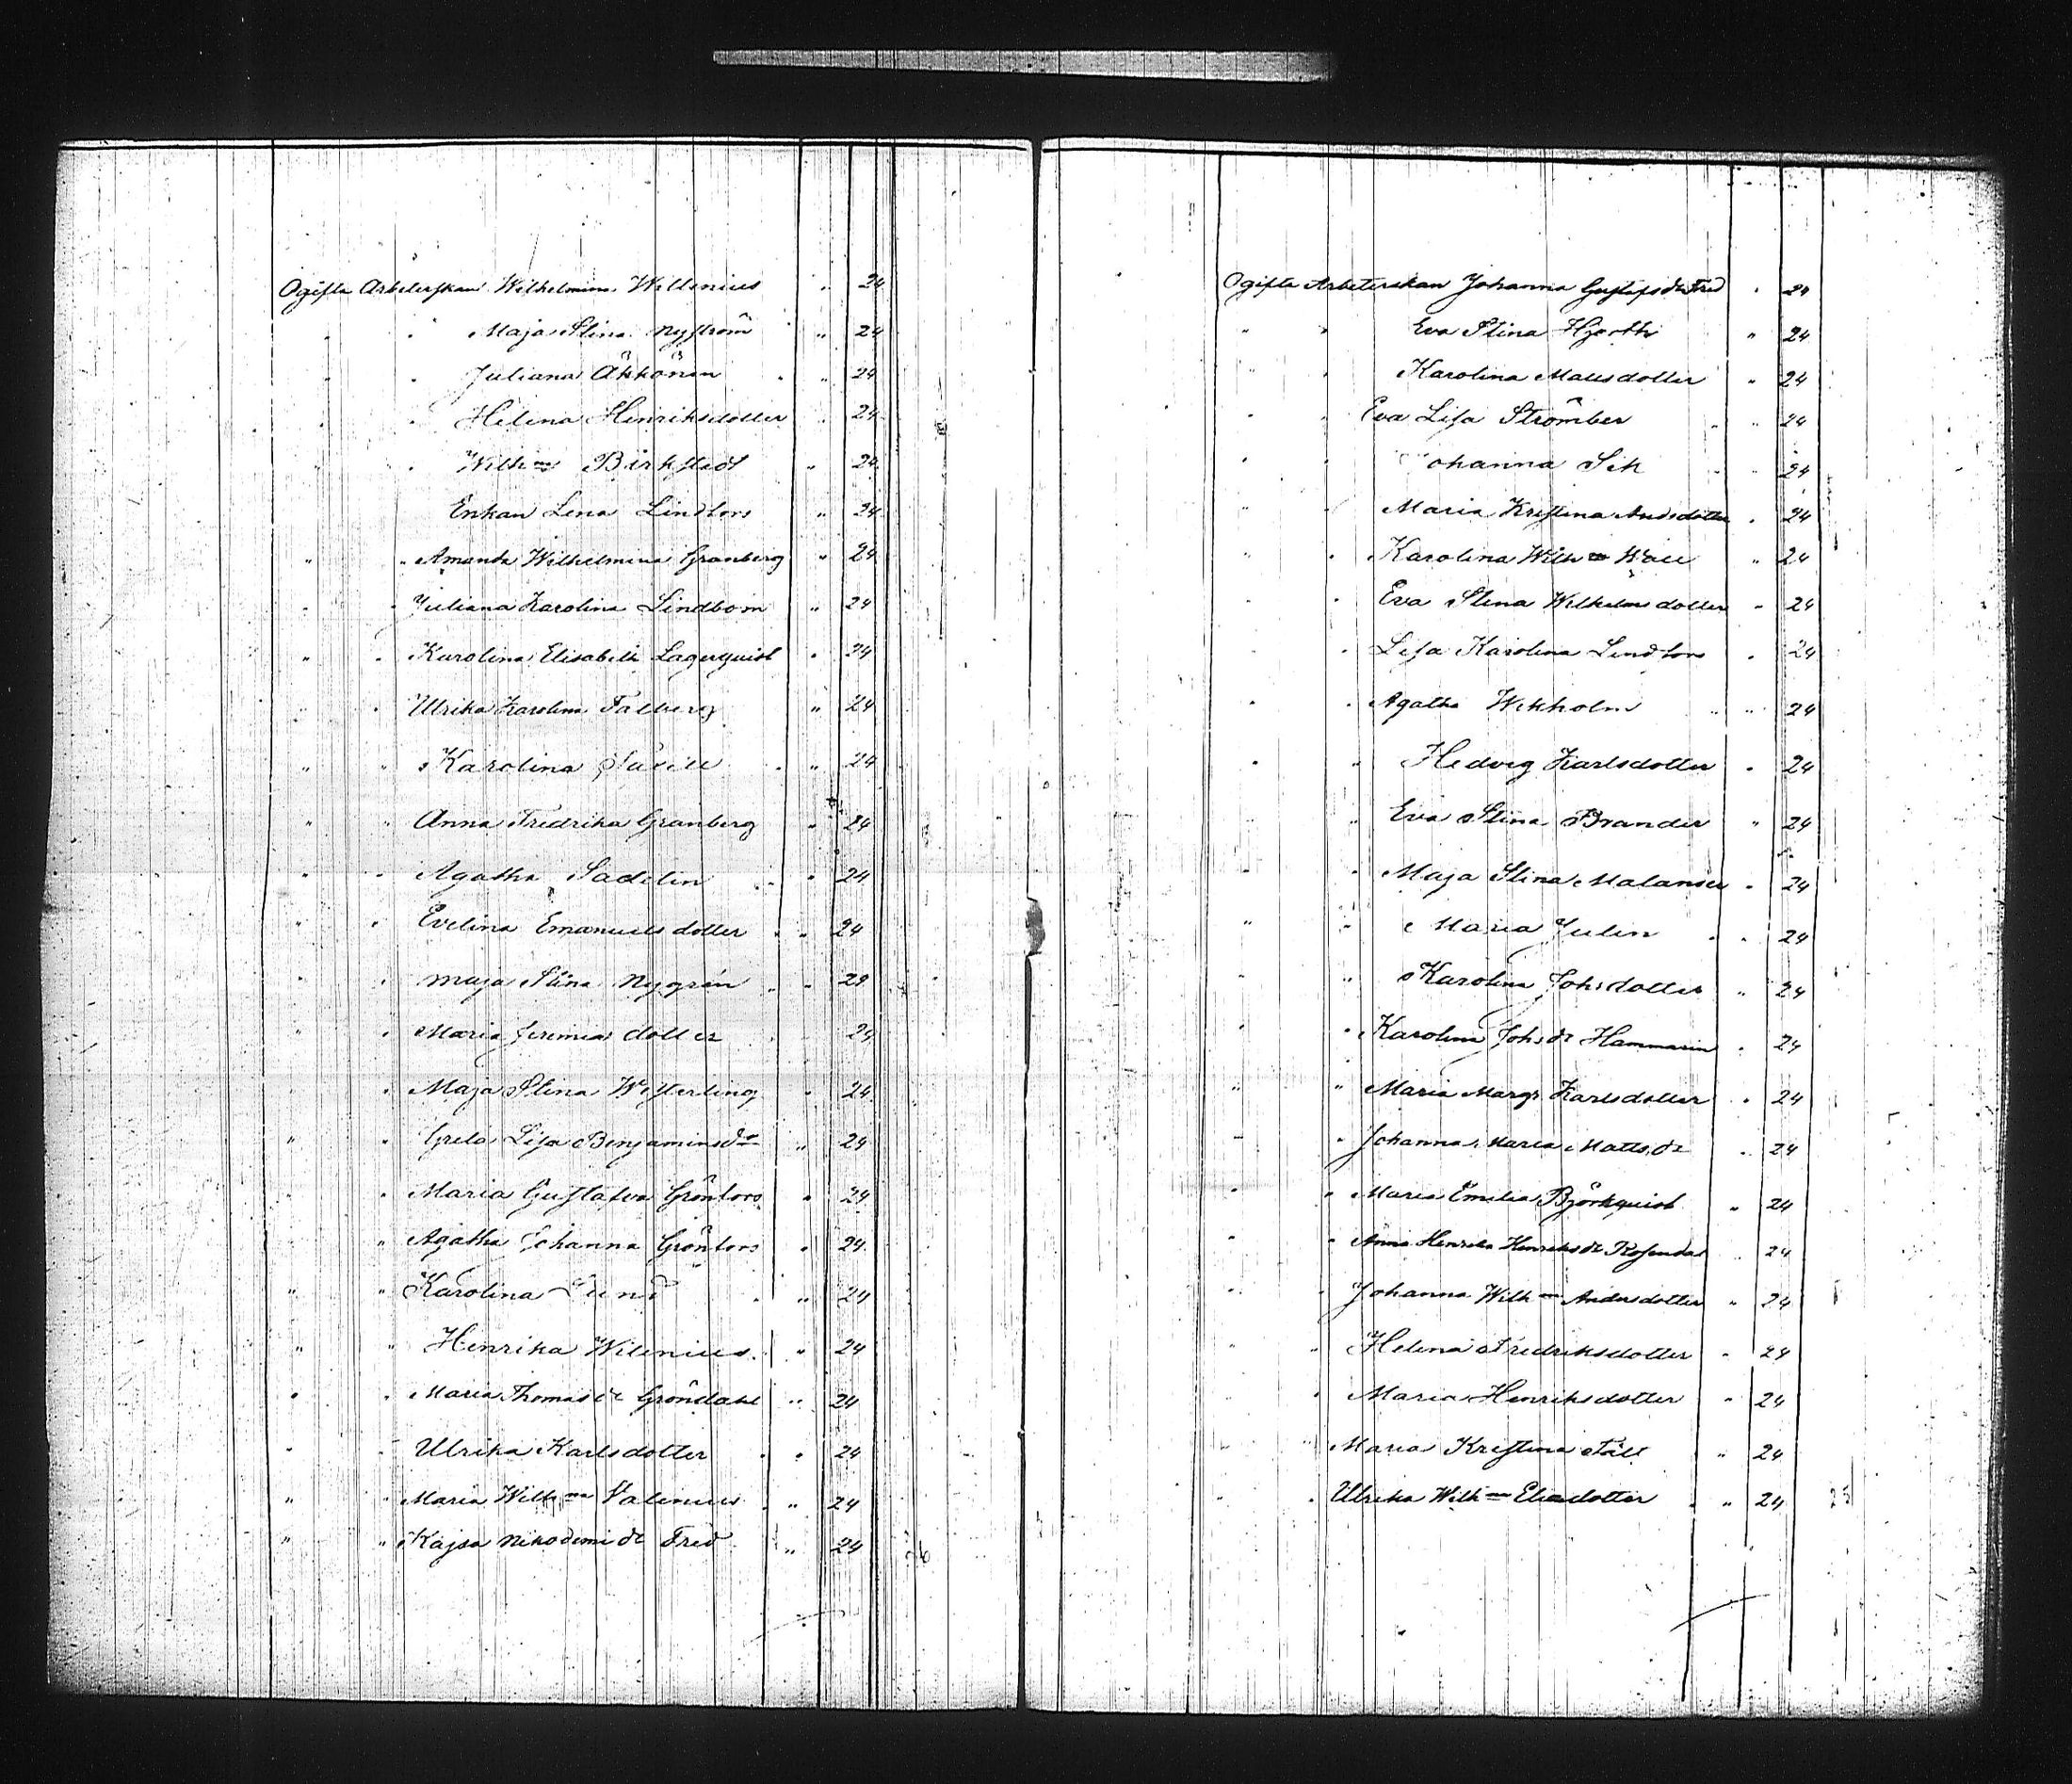 Ogifta Arbeterskan Wilhelmina Willenius " 24
" " Maja Stina Nyström " 24
" " Juliana Åkkönen " 24
" " Helena Henriksdotter " 24
" " Wilhna Birkstedt " 24
Enkan Lena Lindfors " 24
" " Amanda Wilhelmina Granberg " 24
" " Juliana Karolina Lindbom " 24
" " Karolina Elisabeth Lagerquist " 24
" " Ulrika Karolina Falberg " 24
" " Karolina " 24
" " Anna Fredrika Granberg " 24
" " Agatha Sadelin " 24
" " Evelina Emanuelsdotter " 24
" " Maja Stina Nygrén " 24
" " Maria Jeremiasdotter " 24
" " Maja Stina Westerling " 24
" " Greta Lisa Benjaminsdr " 24
" " Maria Gustafva Grönfors " 24
" " Agatha Johanna Grönfors " 24
" " Karolina Lund " 24
" " Henrika Wilenius " 24
" " Maria Thomasdr Gröndahl " 24
" " Ulrika Karlsdotter " 24
" " Maria Wilhna Valenius " 24
" " Kajsa Nikodemidr Fred " 24
26
Ogifta Arbeterskan Johanna Gustafsdr Fred " 24
" " Eva Stina Hjorth " 24
" " Karolina Mattsdotter " 24
" " Eva Lisa Strömber " 24
" " Johanna Sik " 24
" " Maria Kristina Andsdotter " 24
" " Karolina Wilhna Wall " 24
" " Eva Stina Wilhelmsdotter " 24
" " Lisa Karolina Lindfors " 24
" " Agatha Wikholm " 24
" " Hedvig Karlsdotter " 24
" " Eva Stina Brander " 24
" " Maja Stina Malander " 24
" " Maria Julin " 24
" " Karolina Johsdotter " 24
" " Karolina Johsdr Hammarin " 24
" " Maria Margr Karlsdotter " 24
" " Johanna Maria Mattsdr " 24
" " Maria Emilia Björkquist " 24
" " Anna Henrika Henriksdr Rosendal " 24
" " Johanna Wilhna Andersdotter " 24
" " Helena Fredriksdotter " 24
" " Maria Henriksdotter " 24
" " Maria Kristina Fält " 24
" " Ulrika Wilhna Eliasdotter " 24
25